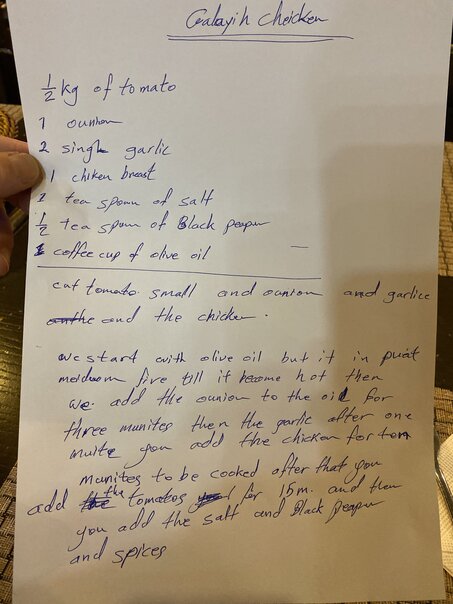 Galayih cheicken
1/2 kg of tomato
1 ounion
2 single garlic
1 chiken breast
1 tea spown of salt
1/2 tea spown of Black peaper
1 coffee cup of olive oil
cut tomato small and ounion and garlice
and the chicken.
we start with olive oil but it in puat
meideom fire till it become hot then
we add the ounion to the oil for
three munites then the garlic after one
muite you add the chicken for ten
munites to be cooked after that you
add the tomatos for 15m. and then
you add the salt and Black peaper
and spices